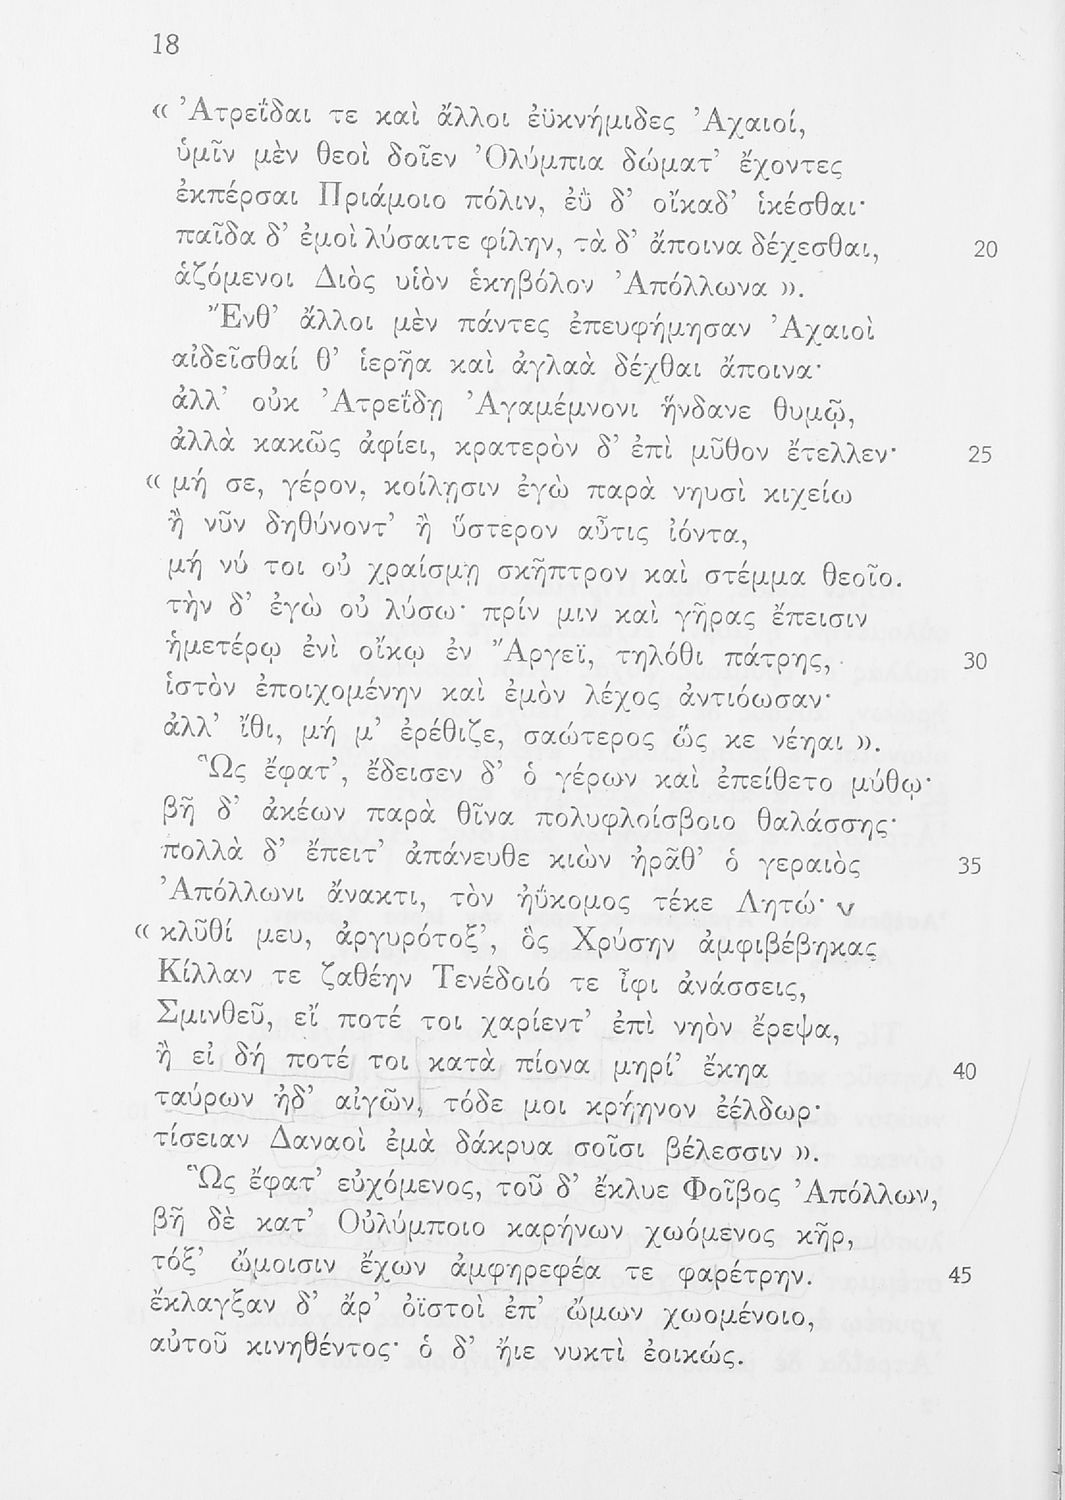 18
« Ἀτρεΐδαι τε καὶ ἄλλοι ἐϋκνήμιδες Ἀχαιοί,
ὑμῖν μὲν θεοὶ δοῖεν Ὀλύμπια δώματ’ ἔχοντες
ἐκπέρσαι Πριάμοιο πόλιν, ἐῢ δ’ οἴκαδ’ ἱκέσθαι·
παῖδα δ’ ἐμοὶ λύσαιτε φίλην, τὰ δ’ ἄποινα δέχεσθαι, 20
ἁζόμενοι Διὸς υἱὸν ἑκηβόλον Ἀπόλλωνα ».
Ἔνθ’ ἄλλοι μὲν πάντες ἐπευφήμησαν Ἀχαιοὶ
αἰδεῖσθαί θ’ ἱερῆα καὶ ἀγλαὰ δέχθαι ἄποινα·
ἀλλ’ οὐκ Ἀτρεΐδῃ Ἀγαμέμνονι ἥνδανε θυμῷ,
ἀλλὰ κακῶς ἀφίει, κρατερὸν δ’ ἐπὶ μῦθον ἔτελλεν· 25
« μή σε, γέρον, κοίλῃσιν ἐγὼ παρὰ νηυσὶ κιχείω
ἢ νῦν δηθύνοντ’ ἢ ὕστερον αὖτις ἰόντα,
μή νύ τοι οὐ χραίσμῃ σκῆπτρον καὶ στέμμα θεοῖο.
τὴν δ’ ἐγὼ οὐ λύσω· πρίν μιν καὶ γῆρας ἔπεισιν
ἡμετέρῳ ἐνὶ οἴκῳ ἐν Ἄργεϊ, τηλόθι πάτρης, 30
ἱστὸν ἐποιχομένην καὶ ἐμὸν λέχος ἀντιόωσαν·
ἀλλ’ ἴθι, μή μ’ ἐρέθιζε, σαώτερος ὥς κε νέηαι ».
Ὣς ἔφατ’, ἔδεισεν δ’ ὁ γέρων καὶ ἐπείθετο μύθῳ·
βῆ δ’ ἀκέων παρὰ θῖνα πολυφλοίσβοιο θαλάσσης·
πολλὰ δ’ ἔπειτ’ ἀπάνευθε κιὼν ἠρᾶθ’ ὁ γεραιὸς 35
Ἀπόλλωνι ἄνακτι, τὸν ἠΰκομος τέκε Λητώ·
« κλῦθί μευ, ἀργυρότοξ’, ὃς Χρύσην ἀμφιβέβηκας
Κίλλαν τε ζαθέην Τενέδοιό τε ἶφι ἀνάσσεις,
Σμινθεῦ, εἴ ποτέ τοι χαρίεντ’ ἐπὶ νηὸν ἔρεψα,
ἢ εἰ δή ποτέ τοι κατὰ πίονα μηρί’ ἔκηα 40
ταύρων ἠδ’ αἰγῶν, τόδε μοι κρήηνον ἐέλδωρ·
τίσειαν Δαναοὶ ἐμὰ δάκρυα σοῖσι βέλεσσιν ».
Ὣς ἔφατ’ εὐχόμενος, τοῦ δ’ ἔκλυε Φοῖβος Ἀπόλλων,
βῆ δὲ κατ’ Οὐλύμποιο καρήνων χωόμενος κῆρ,
τόξ’ ὤμοισιν ἔχων ἀμφηρεφέα τε φαρέτρην. 45
ἔκλαγξαν δ’ ἄρ’ ὀϊστοὶ ἐπ’ ὤμων χωομένοιο,
αὐτοῦ κινηθέντος· ὁ δ’ ἤιε νυκτὶ ἐοικώς.